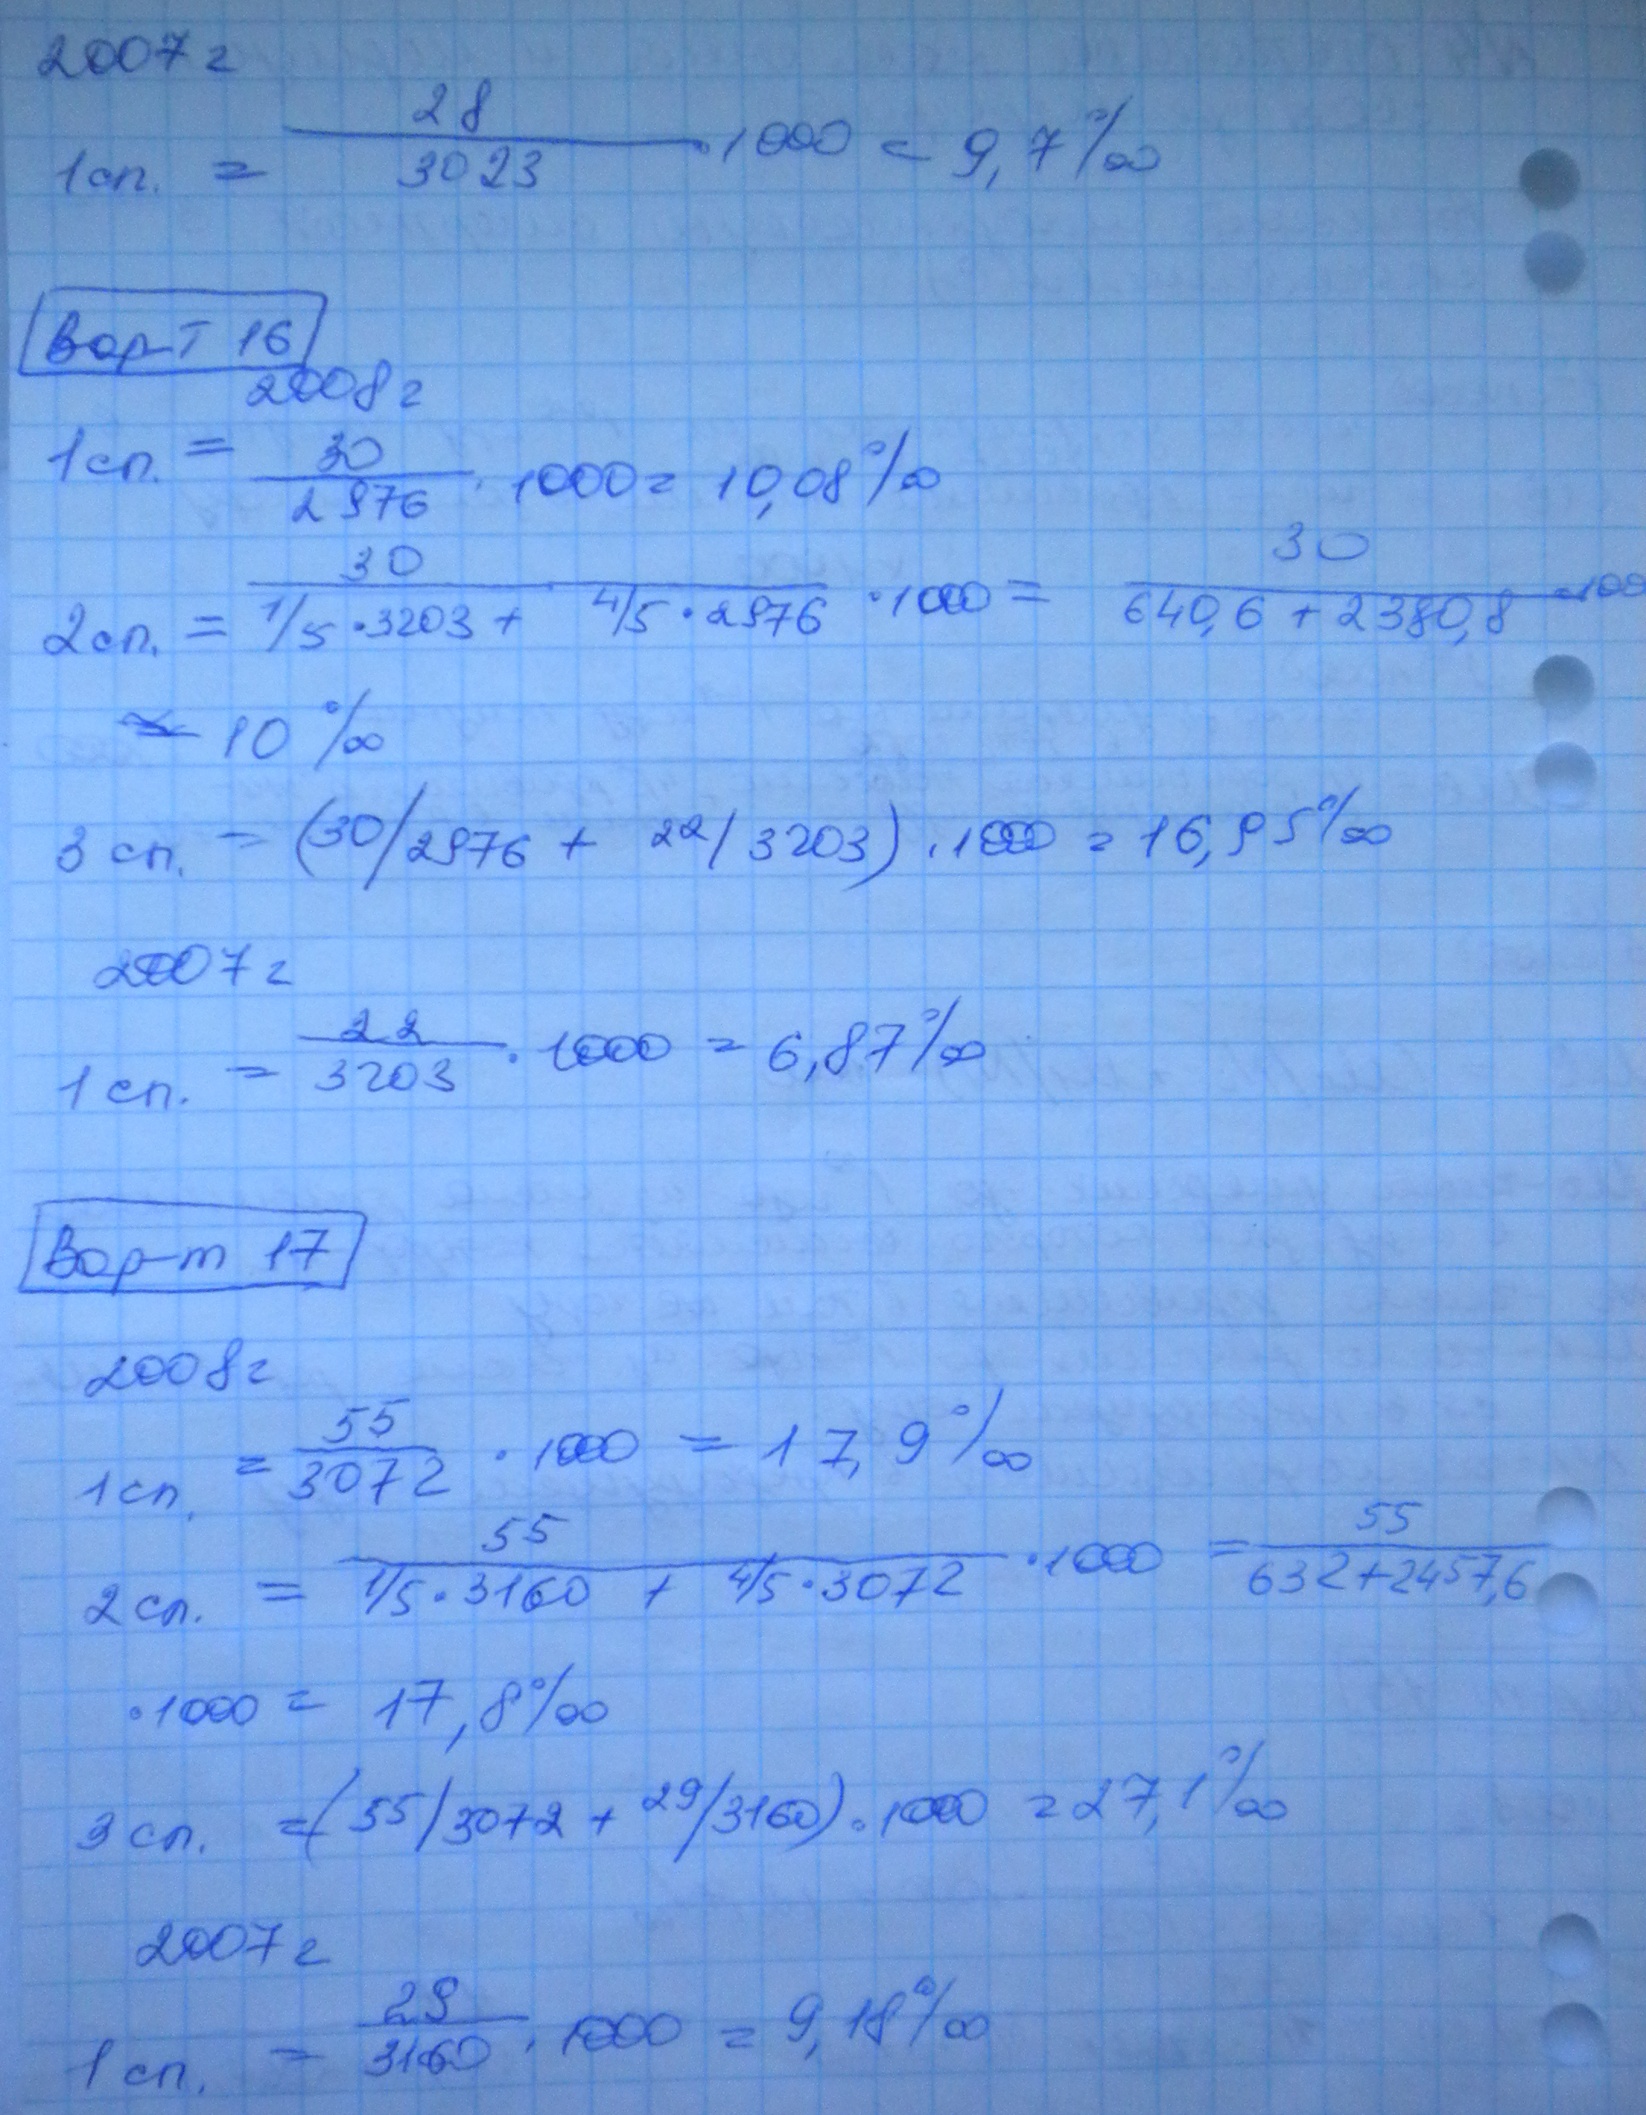 2007г
1сп. = 28/3023 · 1000 = 9,7‰
Вар-т 16
2008г
1сп. = 30/2976 · 1000 = 10,08‰
2сп. = 30/(1/5 · 3203 + 4/5 · 2976) · 1000 = 30/(640,6 + 2380,8) · 100
≈ 10‰
3 сп. = (30/2976 + 22/3203) · 1000 = 16,95‰
2007г
1 сп. = 22/3203 · 1000 = 6,87‰
Вар-т 17
2008г
1сп. = 55/3072 · 1000 = 17,9‰
2сп. = 55/(1/5 · 3160 + 4/5 · 3072) · 1000 = 55/(632+2457,6)
· 1000 = 17,8‰
3 сп. = (55/3072 + 29/3160) · 1000 = 27,1‰
2007г
1 сп. = 29/3160 · 1000 = 9,18‰